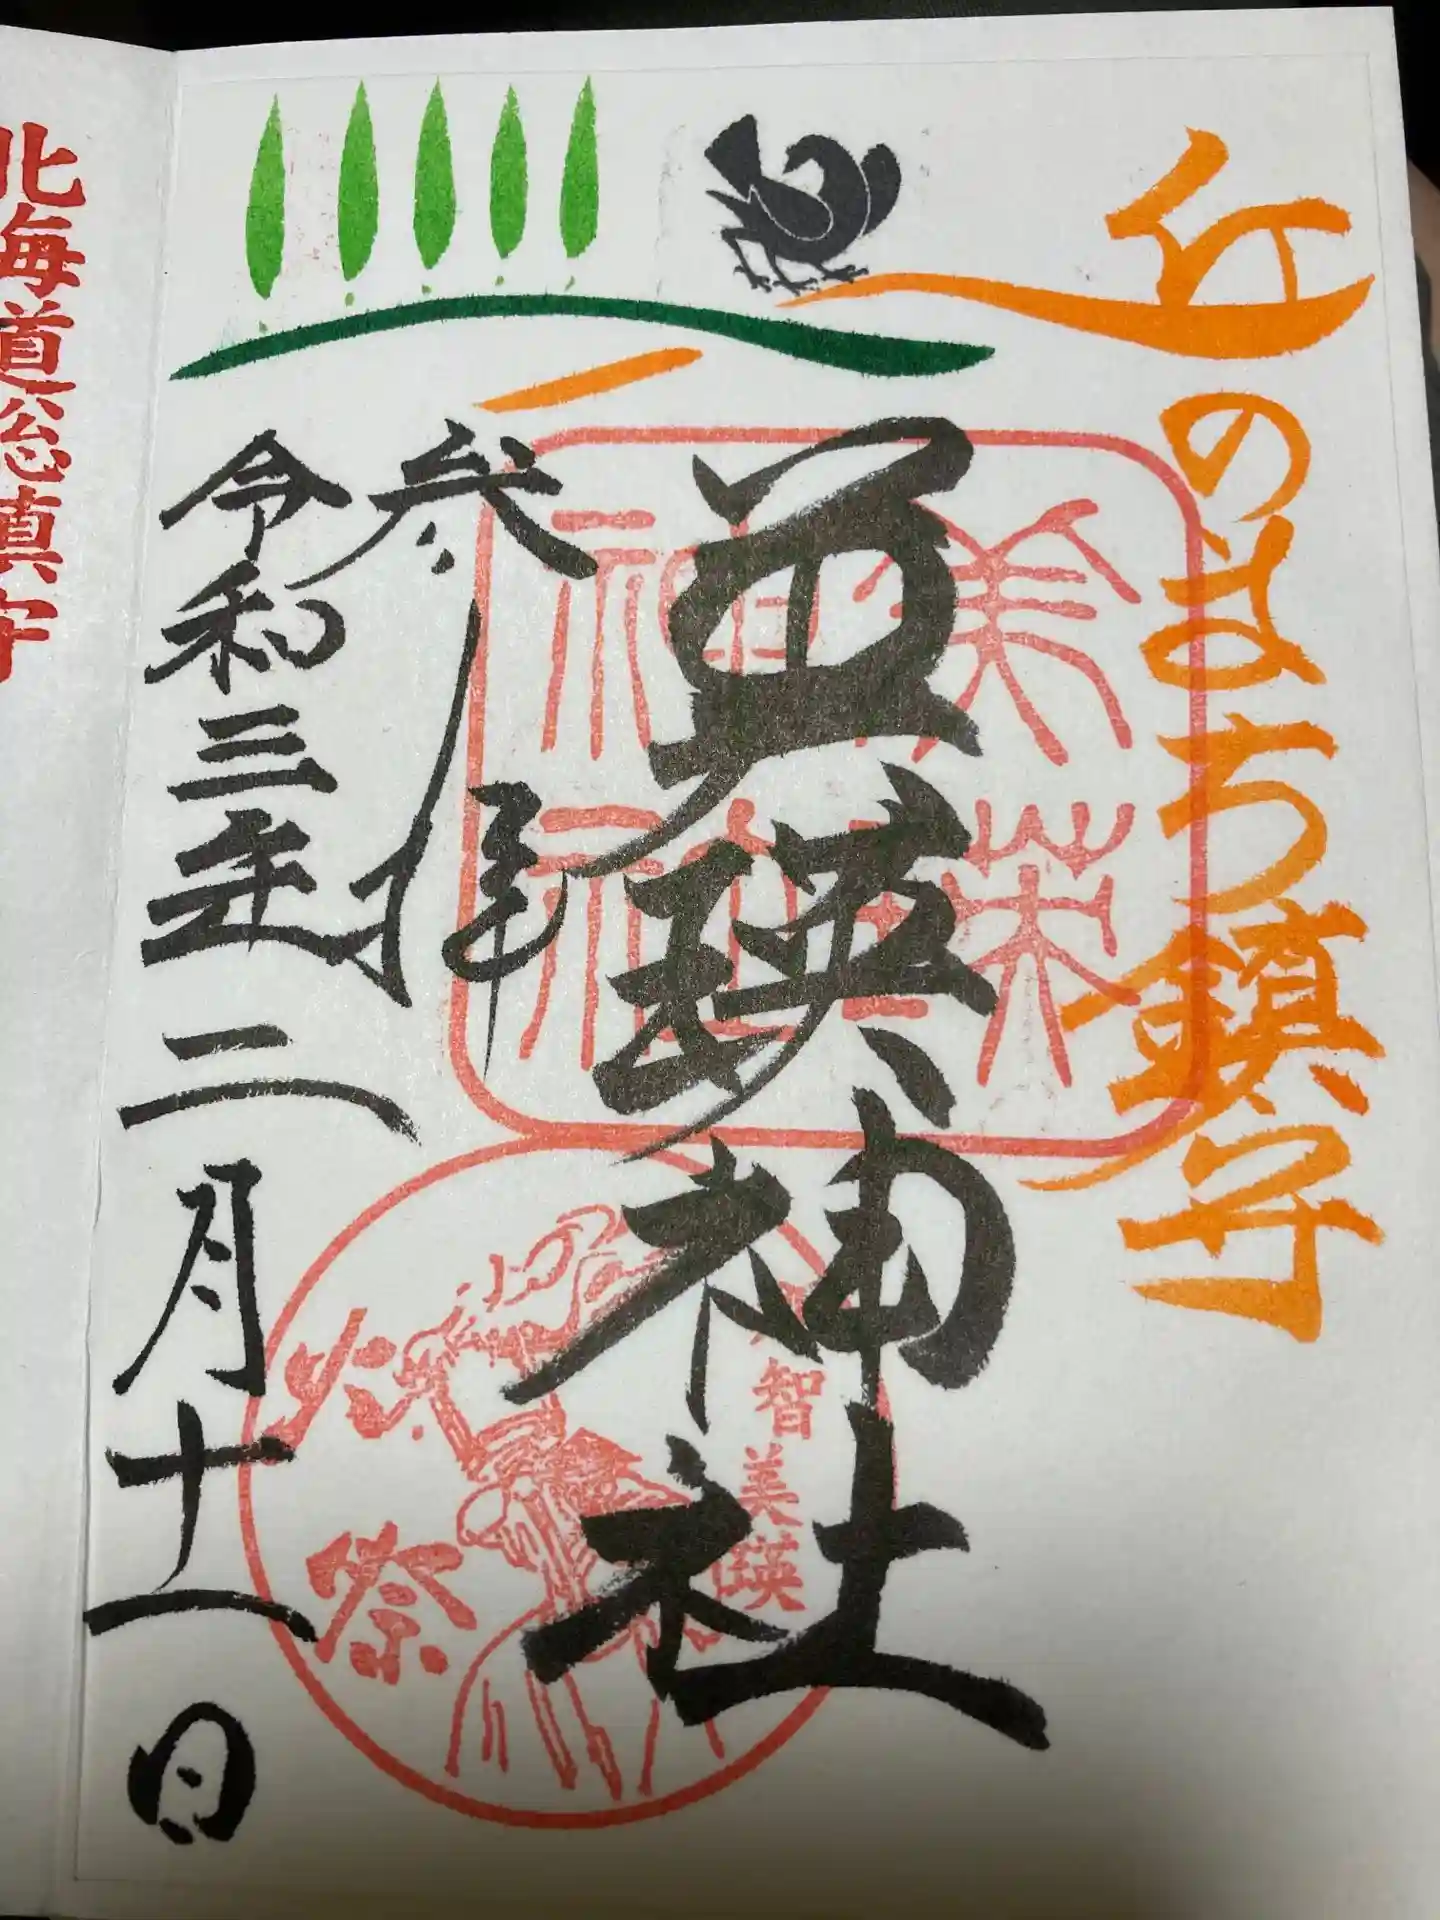 丘のまち鎮守
美瑛神社
美瑛神社
参拝
令和三年二月十一日
那智美瑛
火祭
北海道総鎮守